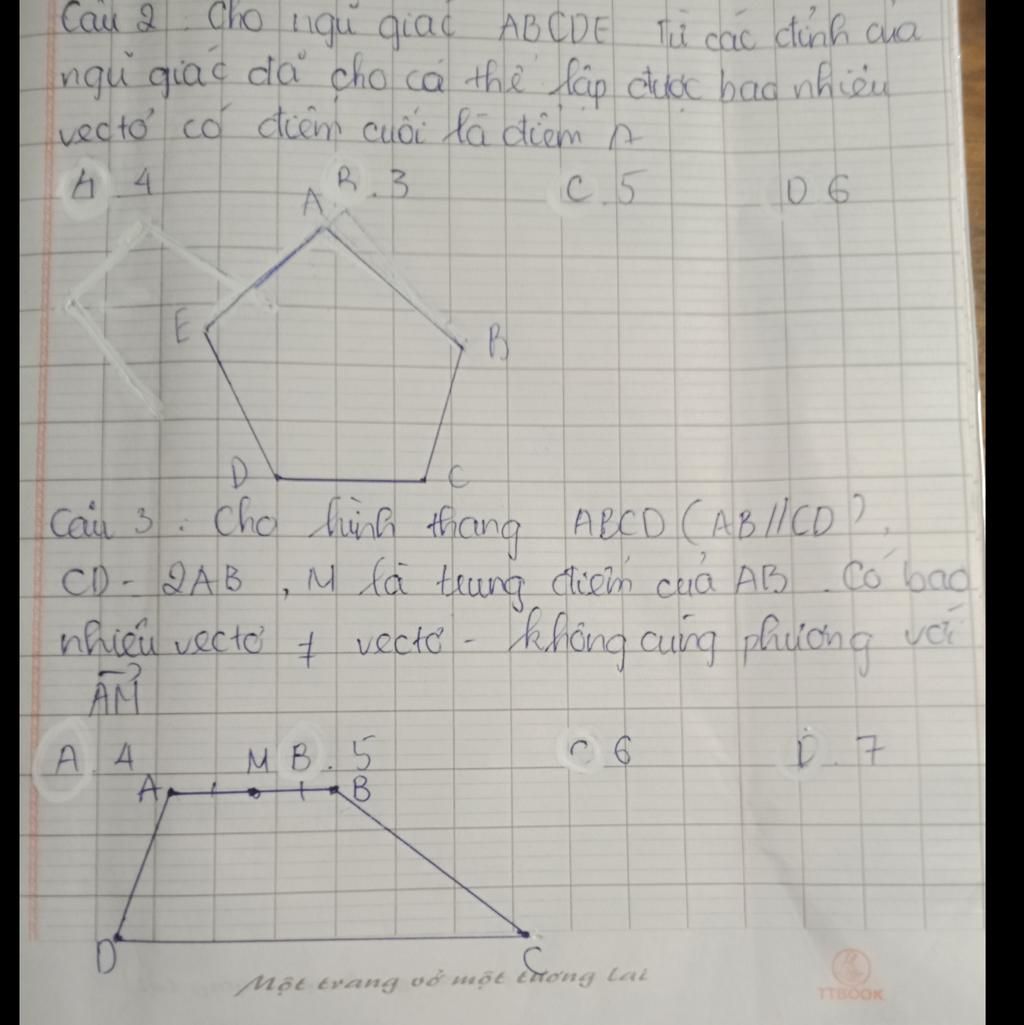 Câu 2. Cho ngũ giác ABCDE Từ các đỉnh của
ngũ giác đã cho có thể lập được bao nhiêu
vectơ có điểm cuối là điểm A
A. 4 B. 3 C. 5 D 6
A
E B
D C
Câu 3: Cho hình thang ABCD (AB//CD),
CD = 2AB, M là trung điểm của AB. Có bao
nhiêu vectơ ≠ vectơ - không cùng phương với
AM
A. 4 B. 5 C 6 D. 7
A M B
D C
Một trang vở một tương lai
TTBOOK